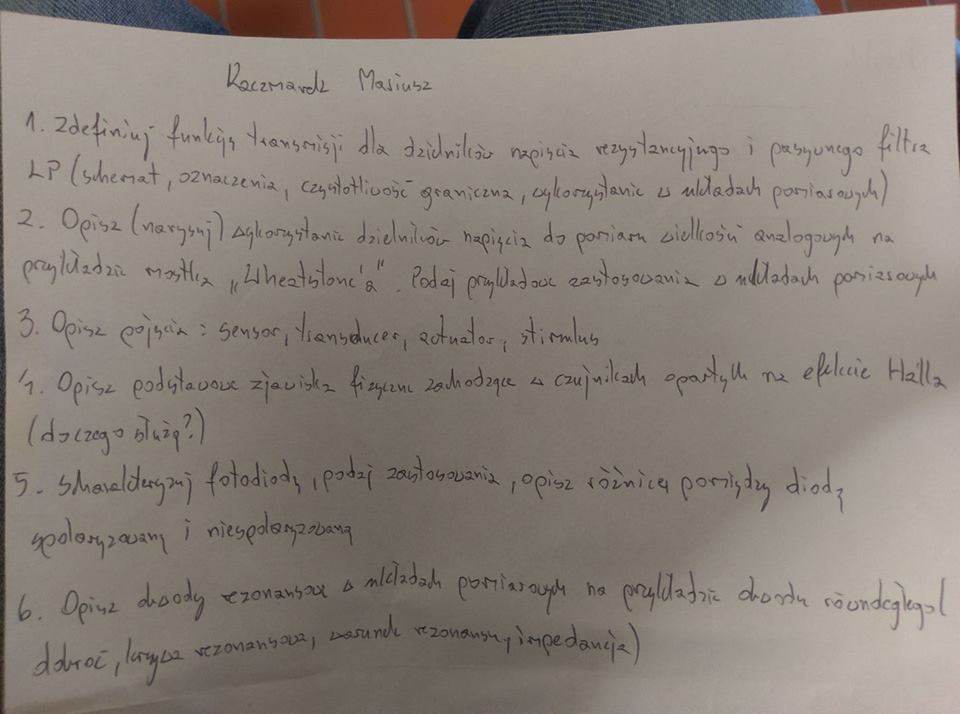 Kaczmarek Mariusz
1. Zdefiniuj funkcję transmisji dla dzielników napięcia rezystancyjnego i pasywnego filtra
LP (schemat, oznaczenia, częstotliwość graniczna, wykorzystanie w układach pomiarowych)
2. Opisz (narysuj) wykorzystanie dzielników napięcia do pomiaru wielkości analogowych na
przykładzie mostka „Wheatstone'a". Podaj przykładowe zastosowania w układach pomiarowych
3. Opisz pojęcia: sensor, transducer, actuator, stimulus
4. Opisz podstawowe zjawiska fizyczne zachodzące w czujnikach opartych na efekcie Halla
(do czego służą?)
5. Scharakteryzuj fotodiodę, podaj zastosowania, opisz różnicę pomiędzy diodą
spolaryzowaną i niespolaryzowaną
6. Opisz obwody rezonansowe w układach pomiarowych na przykładzie obwodu równoległego (
dobroć, krzywa rezonansowa, warunek rezonansu, impedancja)